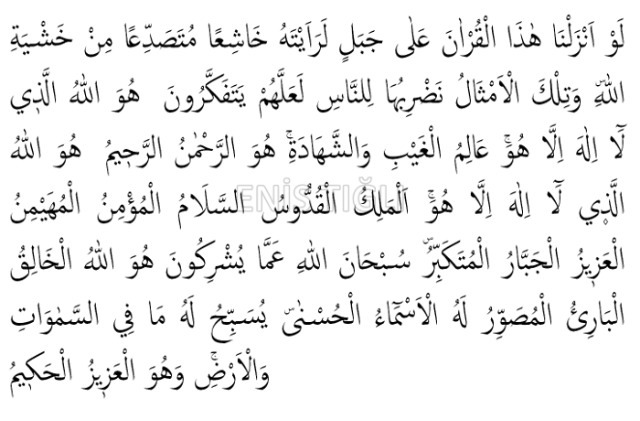 لَوْ اَنْزَلْنَا هٰذَا الْقُرْاٰنَ عَلٰى جَبَلٍ لَرَاَيْتَهُ خَاشِعًا مُتَصَدِّعًا مِنْ خَشْيَةِ
اللّٰهِۜ وَتِلْكَ الْاَمْثَالُ نَضْرِبُهَا لِلنَّاسِ لَعَلَّهُمْ يَتَفَكَّرُونَ هُوَ اللّٰهُ الَّذ۪ي
لَٓا اِلٰهَ اِلَّا هُوَۚ عَالِمُ الْغَيْبِ وَالشَّهَادَةِۚ هُوَ الرَّحْمٰنُ الرَّح۪يمُ هُوَ اللّٰهُ
الَّذ۪ي لَٓا اِلٰهَ اِلَّا هُوَۚ اَلْمَلِكُ الْقُدُّوسُ السَّلَامُ الْمُؤْمِنُ الْمُهَيْمِنُ
الْعَز۪يزُ الْجَبَّارُ الْمُتَكَبِّرُۜ سُبْحَانَ اللّٰهِ عَمَّا يُشْرِكُونَ هُوَ اللّٰهُ الْخَالِقُ
الْبَارِئُ الْمُصَوِّرُ لَهُ الْاَسْمَٓاءُ الْحُسْنٰىۜ يُسَبِّحُ لَهُ مَا فِي السَّمٰوَاتِ
وَالْاَرْضِۚ وَهُوَ الْعَز۪يزُ الْحَك۪يمُ